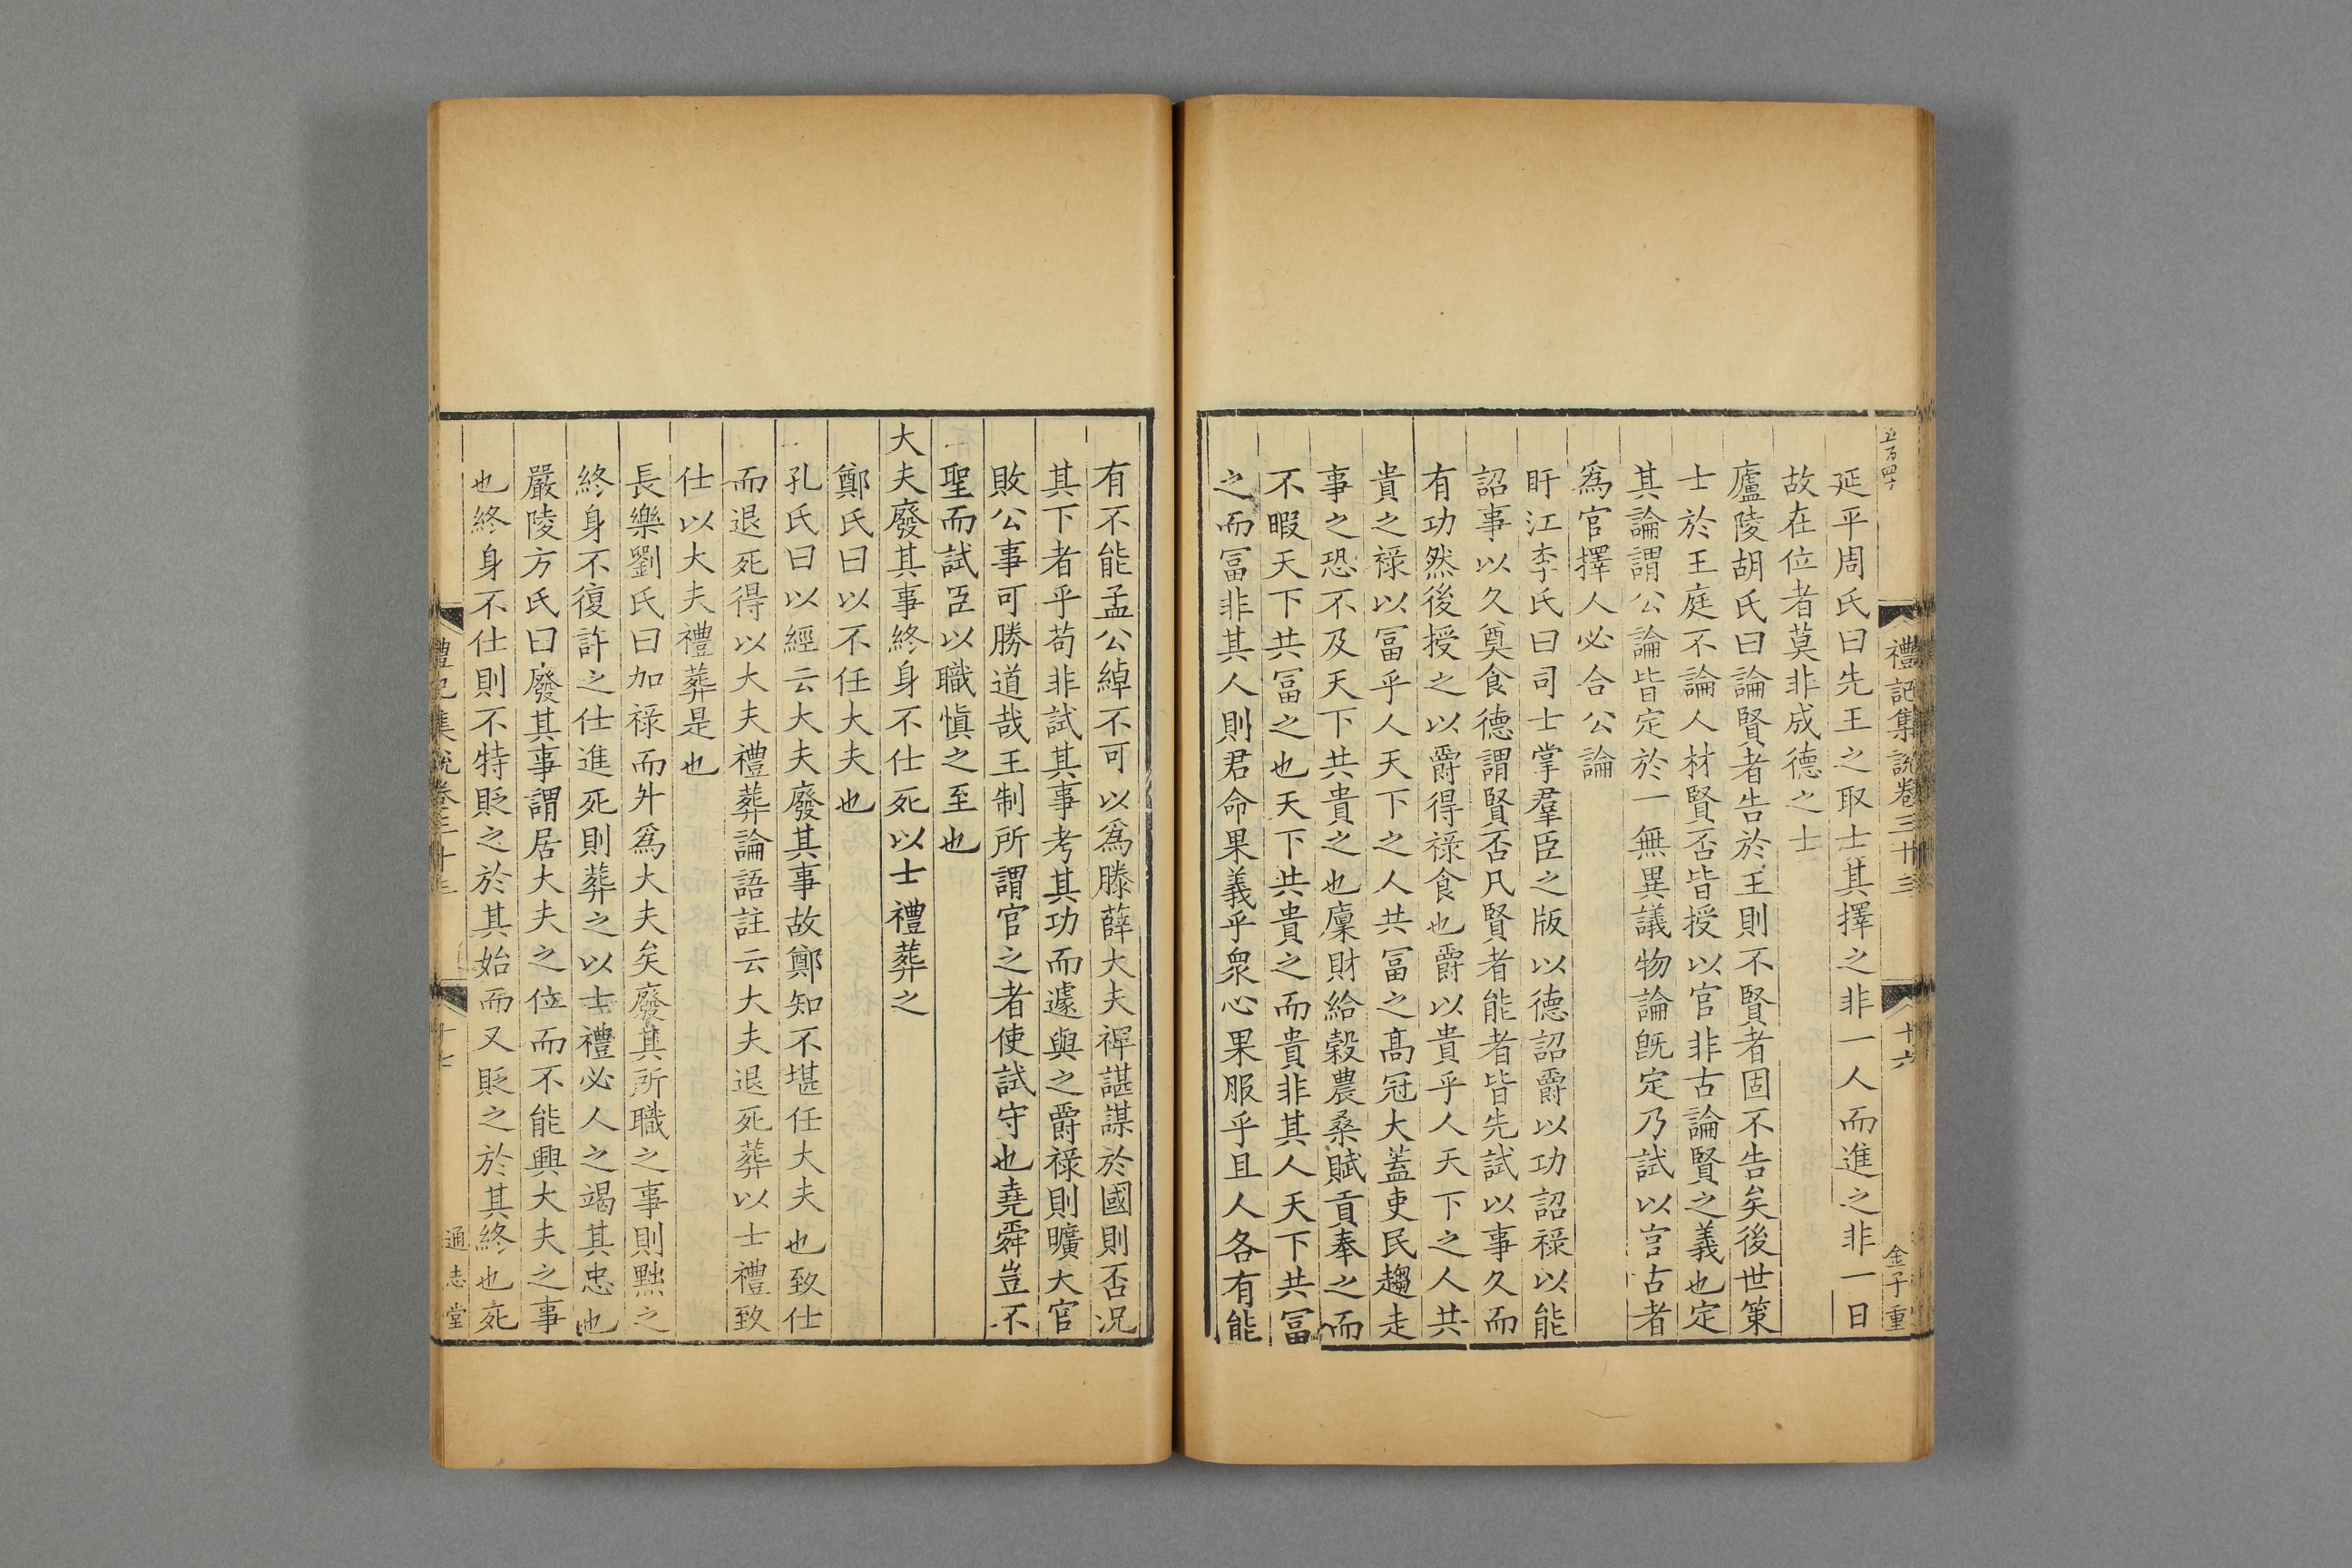 五百四十
禮記集説卷三十三
十六
金子重
延平周氏曰先王之取士其擇之非一人而進之非一日
故在位者莫非成德之士
廬陵胡氏曰論賢者告於王則不賢者固不告矣後世策
士於王庭不論人材賢否皆授以官非古論賢之義也定
其論謂公論皆定於一無異議物論旣定乃試以官古者
爲官擇人必合公論
盱江李氏曰司士掌羣臣之版以德詔爵以功詔祿以能
詔事以久奠食德謂賢否凡賢者能者皆先試以事久而
有功然後授之以爵得祿食也爵以貴乎人天下之人共
貴之祿以冨乎人天下之人共冨之髙冠大蓋吏民趨走
事之恐不及天下共貴之也廩財給穀農桑賦貢奉之而
不暇天下共冨之也天下共貴之而貴非其人天下共冨
之而冨非其人則君命果義乎衆心果服乎且人各有能
有不能孟公綽不可以爲滕薛大夫禆諶謀於國則否况
其下者乎苟非試其事考其功而遽與之爵祿則曠大官
敗公事可勝道哉王制所謂官之者使試守也堯舜豈不
聖而試臣以職愼之至也
大夫廢其事終身不仕死以士禮葬之
鄭氏曰以不任大夫也
孔氏曰以經云大夫廢其事故鄭知不堪任大夫也致仕
而退死得以大夫禮葬論語註云大夫退死葬以士禮致
仕以大夫禮葬是也
長樂劉氏曰加祿而升爲大夫矣廢其所職之事則黜之
終身不復許之仕進死則葬之以士禮必人之竭其忠也
嚴陵方氏曰廢其事謂居大夫之位而不能興大夫之事
也終身不仕則不特貶之於其始而又貶之於其終也死
禮記集説卷三十三
十七
通志堂